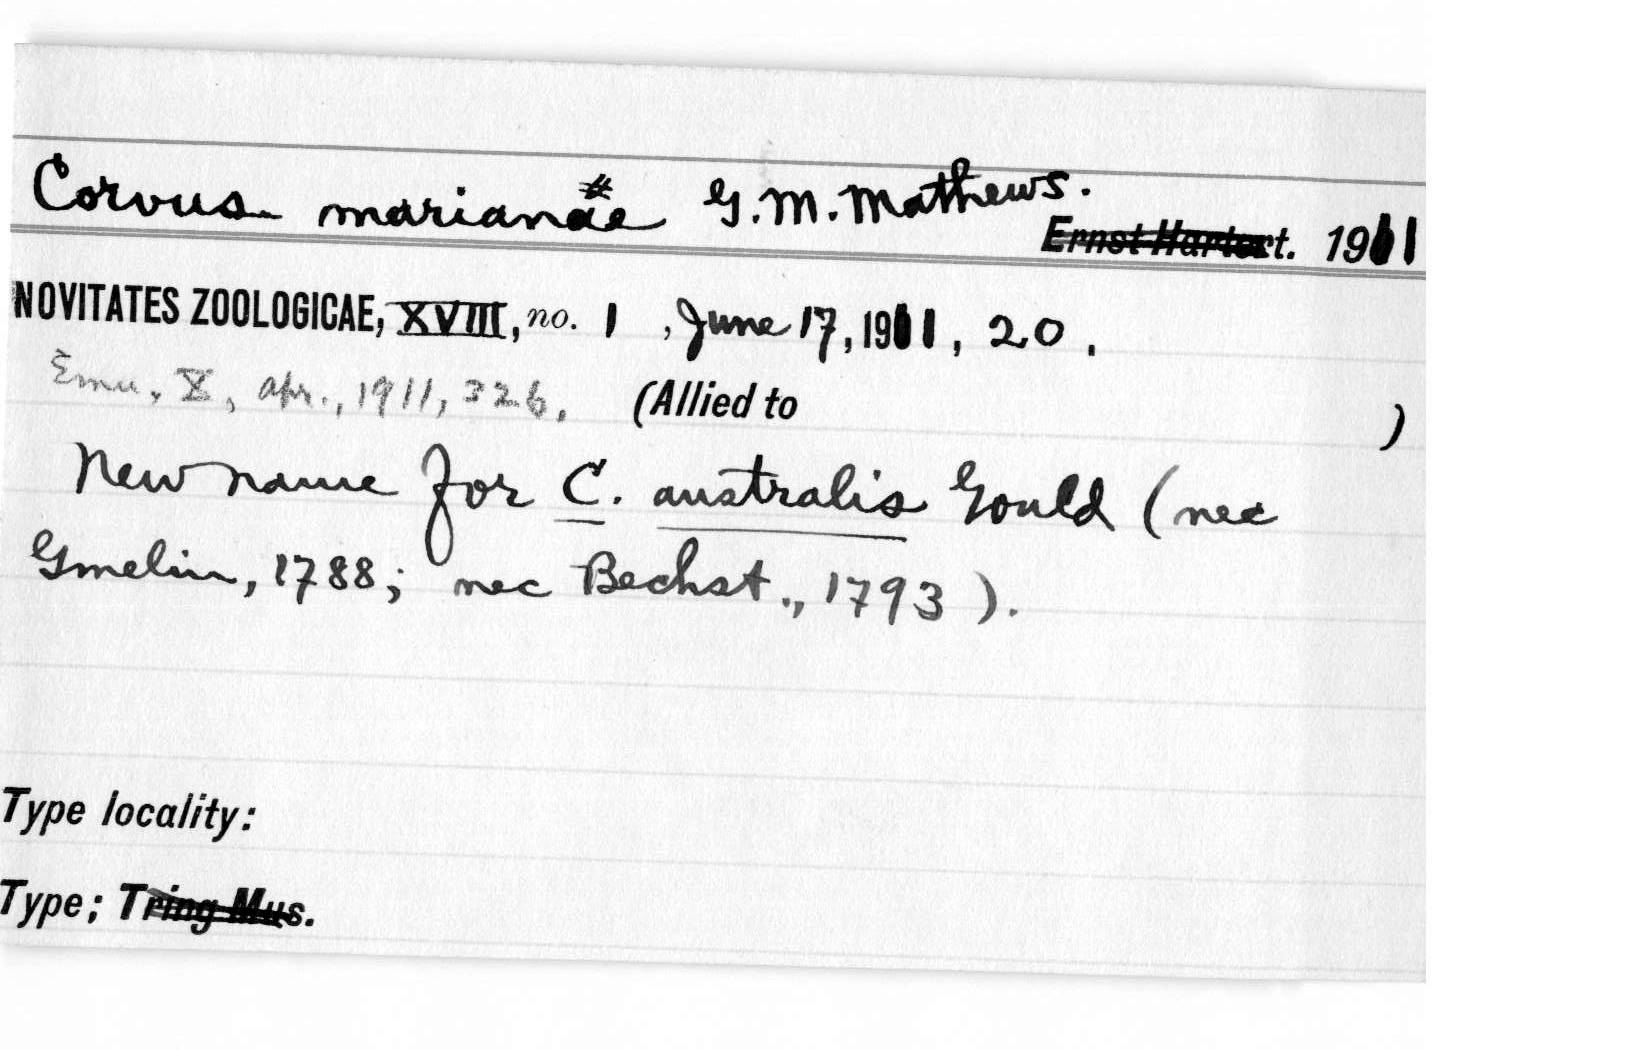 Corvus marianae G.M. Mathews.
Ernst Hartert. 1911
NOVITATES ZOOLOGICAE, XVIII, no. 1, June 17, 1911, 20.
Emu, X, apr., 1911, 326. (Allied to )
New name for C. australis Gould (nec
Gmelin, 1788; nec Bechst., 1793).
Type locality:
Type; Tring Mus.